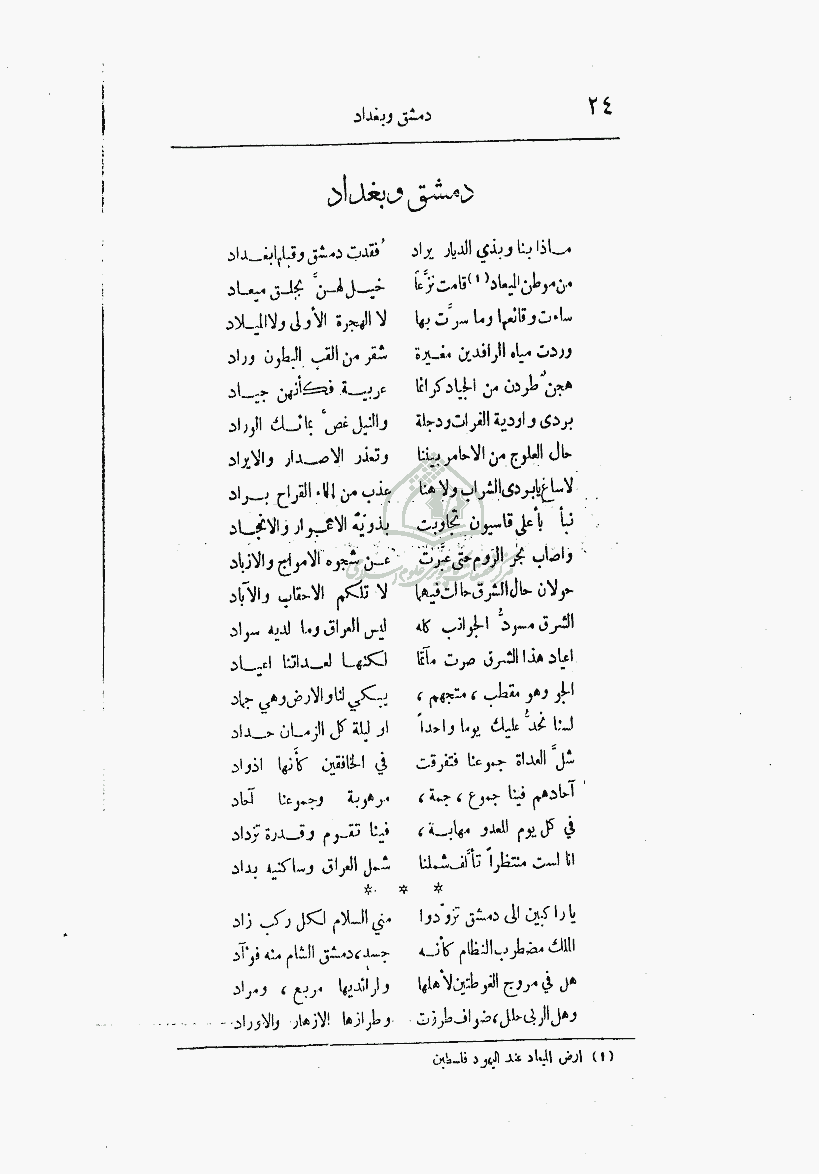 ٢٤
دمشق وبغداد
دمشق وبغداد
مـاذا بنا وبذي الديار يراد فُقدت دمشق وقبلها بغـداد
من موطن الميعاد (١) قامت نزَّعاً خيـل لهـنَّ بجلـق ميعـاد
ساءت وقائعها وما سرَّت بها لا الهجرة الأولى ولا الميـلاد
وردت مياه الرافدين مغـيرة شقر من القب البطون وراد
هجن طردن من الجياد كرائماً عربيـة فكأنهن جيـاد
بردى واودية الفرات ودجلة والنيل غصَّ بمائـك الوراد
حال العلوج من الاحامر بيننا وتعذر الاصـدار والايراد
لا ساغ يا بردى الشراب ولا هنا عذب من الماء القراح بـراد
نبأ بأعلى قاسيون تجاوبت بدويّه الاغـوار والانجـاد
واصاب بحر الروم حتى عبَّرت عـن شجوه الامواج والازباد
حولان حال الشرق حالت فيهما لا تلكم الاحقاب والآباد
الشرق مسودُّ الجوانب كله ليس العراق وما لديه سواد
اعياد هذا الشرق صرت مآتماً لكنهـا لعـداتنا اعيـاد
الجو وهو مقطب ، متجهم ، يبكي لنا والارض وهي جماد
لسنا نحدُّ عليك يوما واحداً او ليلة كل الزمـان حـداد
شلَّ العداة جموعنا فتفرقت في الخافقين كأنها اذواد
آحادهم فينا جموع ، جمة ، مرهوبة وجموعنا آحاد
في كل يوم للعدو مهابـة ، فينا تقـوم وقـدرة تزداد
انا لست منتظراً تألَّف شملنا شمل العراق وساكنيه بداد
* * *
يا راكبين الى دمشق تزوَّدوا مني السلام لكل ركب زاد
الملك مضطرب النظام كأنـه جسد، دمشق الشام منه فؤآد
هل في مروج الغوطتين لأهلها ولرائديها مربع ، ومراد
وهل الربى حلل، ضواف طرزت وطرازها الازهار والاوراد
(١) ارض الميعاد عند اليهود فلسطين